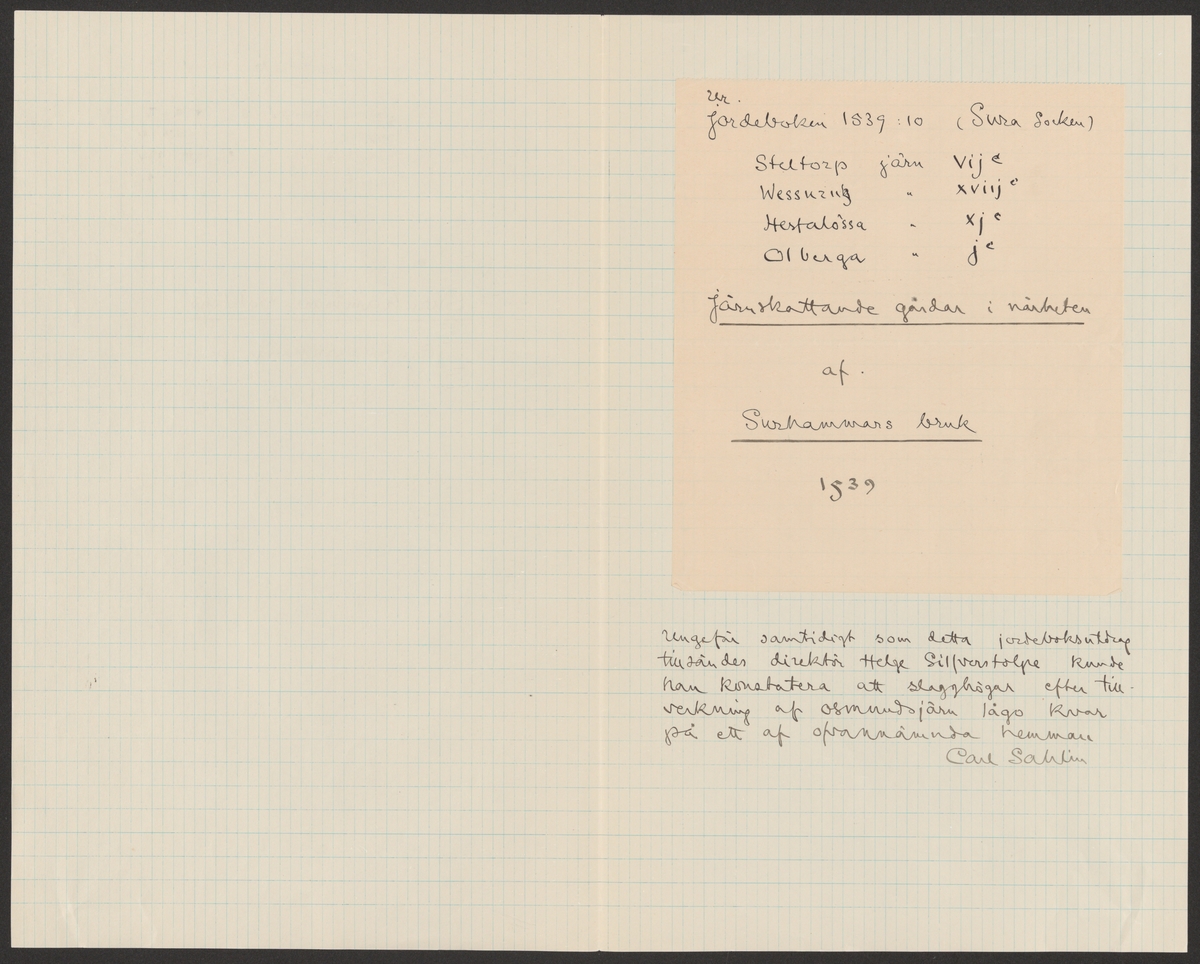 ur.
jordeboken 1539:10 (Sura Socken)
Steltorp järn vij c
Wesskuug " xviij c
Hestalössa " xj c
Olberga " j c
järnskattande gårdar i närheten
af.
Surhammars bruk
1539
Ungefär samtidigt som detta jordeboksutdrag
tillsändes direktör Helge Silfverstolpe kunde
han konstatera att slagghögar efter till-
verkning af osmundsjärn lågo kvar
på ett af ofvannämnda hemman
Carl Sahlin